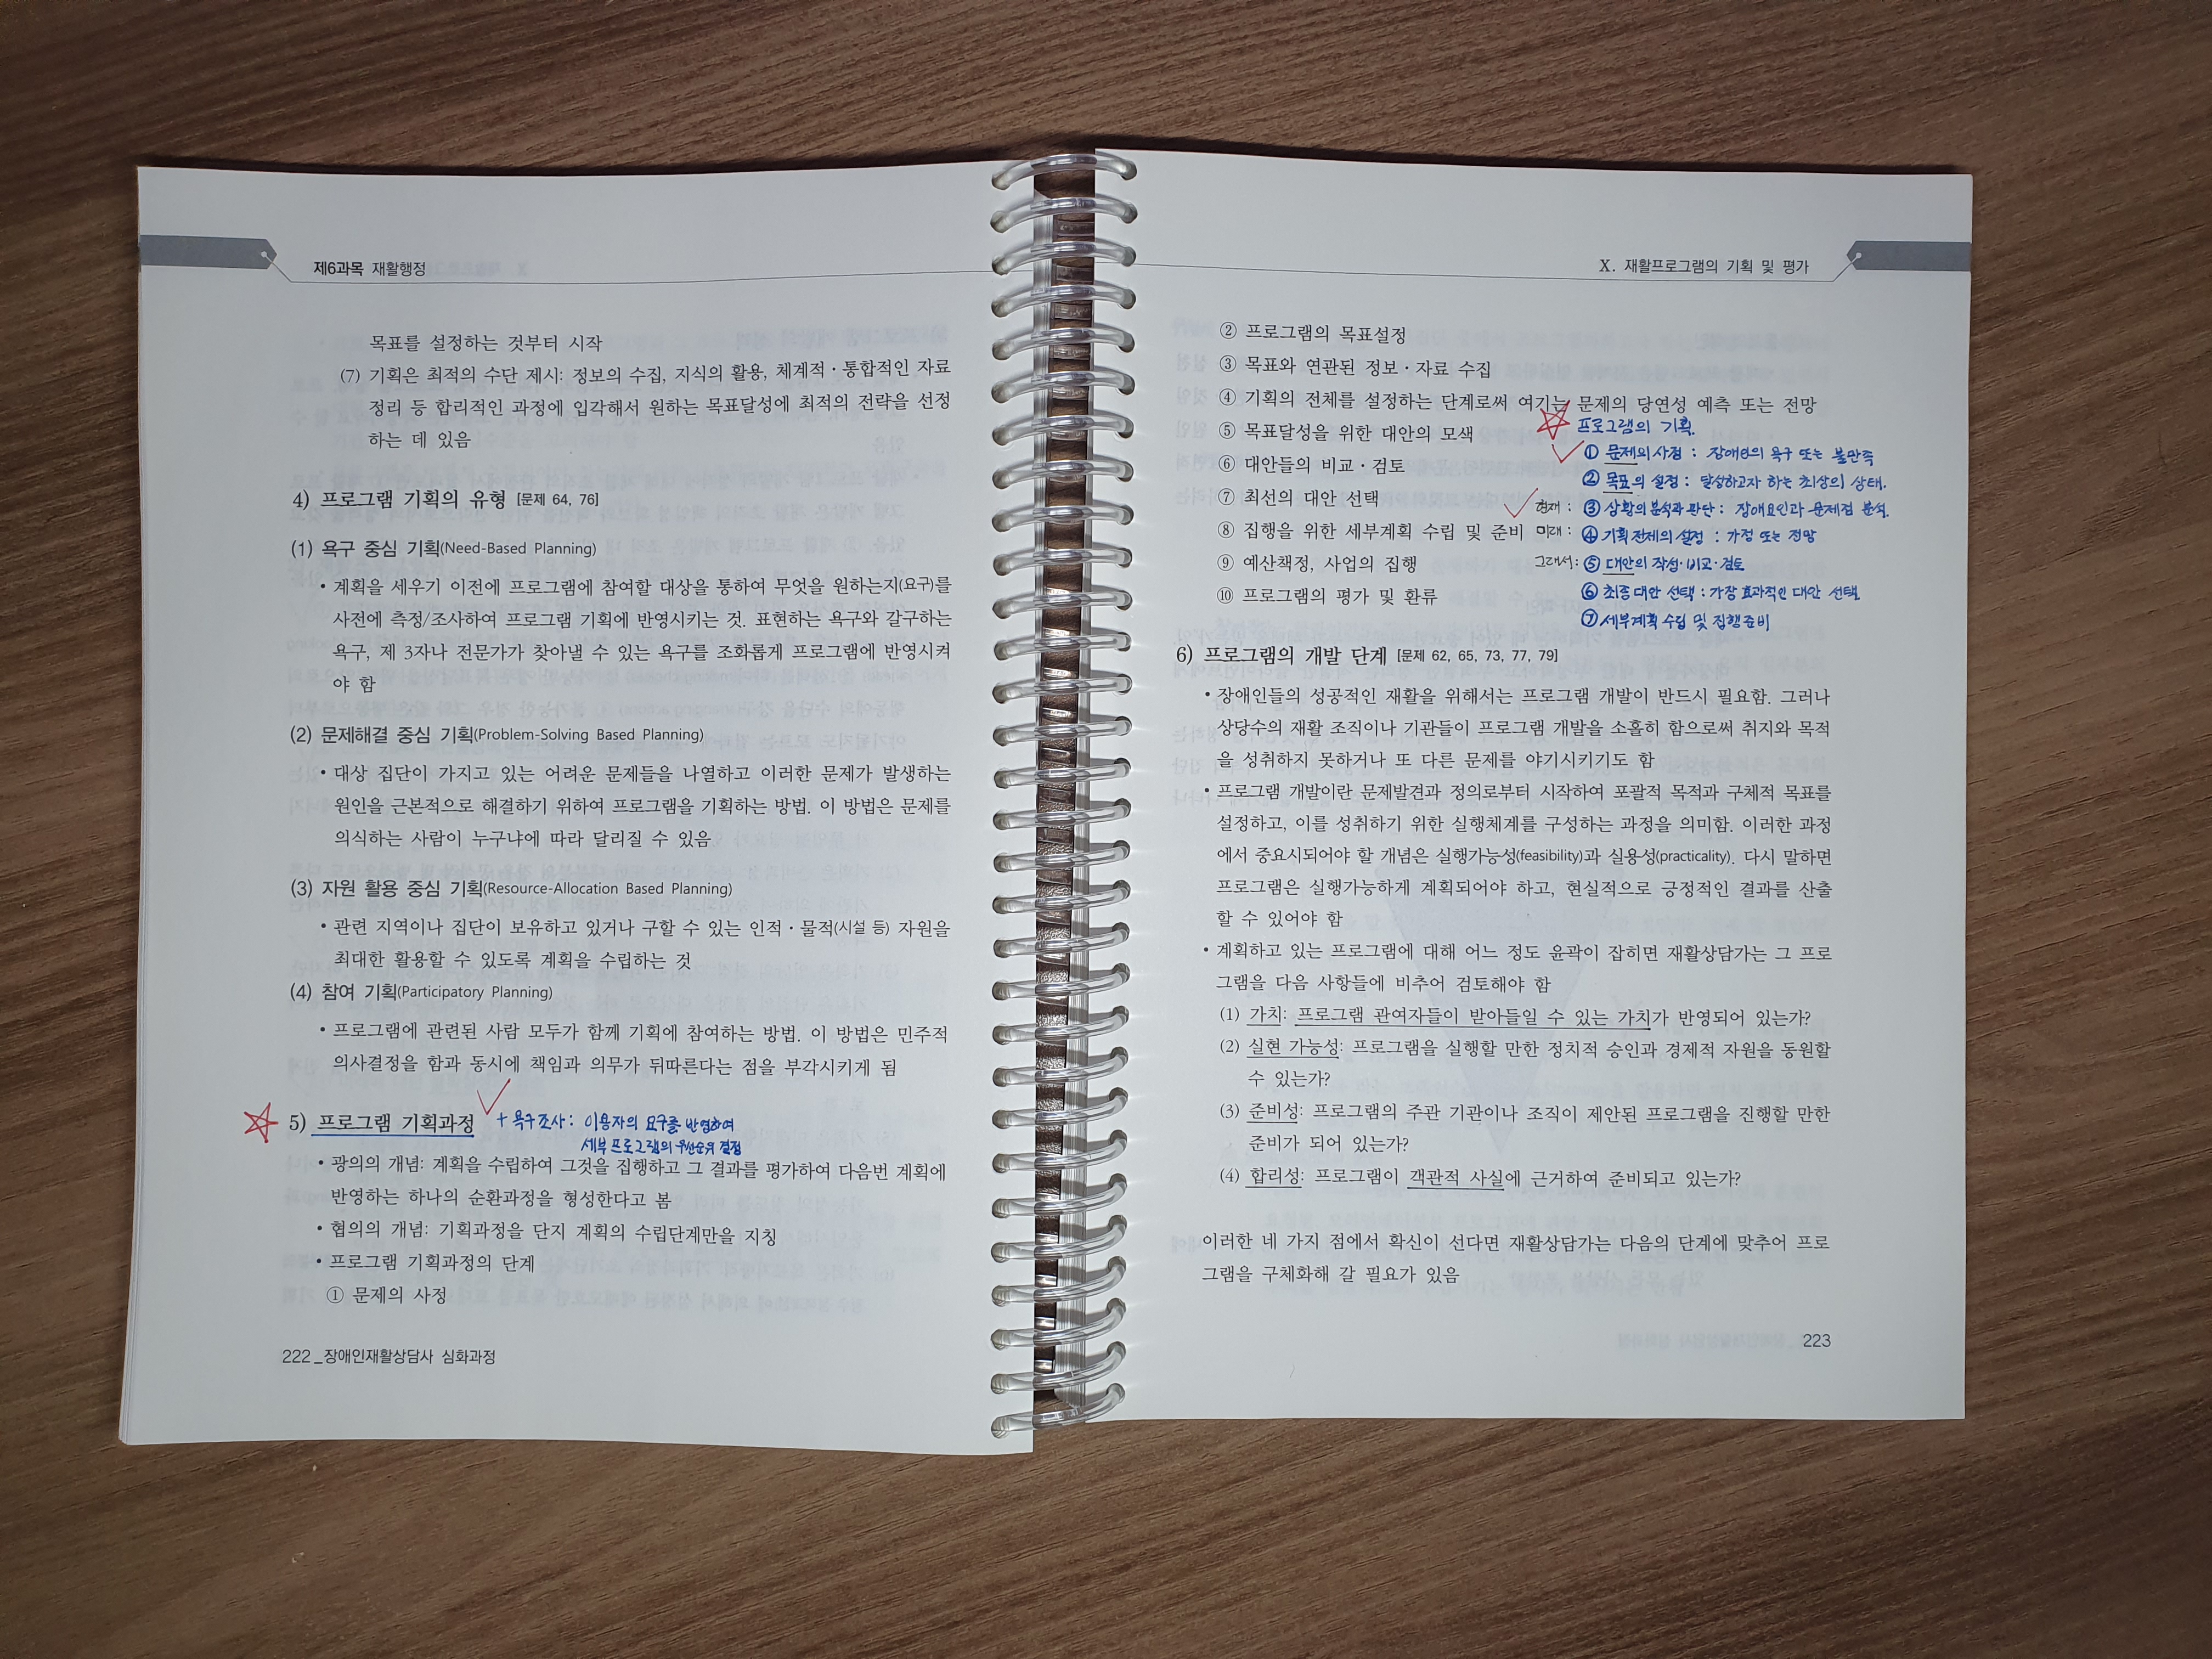 제6과목 재활행정
목표를 설정하는 것부터 시작
(7) 기획은 최적의 수단 제시: 정보의 수집, 지식의 활용, 체계적·통합적인 자료
정리 등 합리적인 과정에 입각해서 원하는 목표달성에 최적의 전략을 선정
하는 데 있음
4) 프로그램 기획의 유형 [문제 64, 76]
(1) 욕구 중심 기획(Need-Based Planning)
• 계획을 세우기 이전에 프로그램에 참여할 대상을 통하여 무엇을 원하는지(요구)를
사전에 측정/조사하여 프로그램 기획에 반영시키는 것. 표현하는 욕구와 갈구하는
욕구, 제 3자나 전문가가 찾아낼 수 있는 욕구를 조화롭게 프로그램에 반영시켜
야 함
(2) 문제해결 중심 기획(Problem-Solving Based Planning)
• 대상 집단이 가지고 있는 어려운 문제들을 나열하고 이러한 문제가 발생하는
원인을 근본적으로 해결하기 위하여 프로그램을 기획하는 방법. 이 방법은 문제를
의식하는 사람이 누구냐에 따라 달리질 수 있음
(3) 자원 활용 중심 기획(Resource-Allocation Based Planning)
• 관련 지역이나 집단이 보유하고 있거나 구할 수 있는 인적·물적(시설 등) 자원을
최대한 활용할 수 있도록 계획을 수립하는 것
(4) 참여 기획(Participatory Planning)
• 프로그램에 관련된 사람 모두가 함께 기획에 참여하는 방법. 이 방법은 민주적
의사결정을 함과 동시에 책임과 의무가 뒤따른다는 점을 부각시키게 됨
5) 프로그램 기획과정 + 욕구조사: 이용자의 요구를 반영하여
세부 프로그램의 우선순위 결정
• 광의의 개념: 계획을 수립하여 그것을 집행하고 그 결과를 평가하여 다음번 계획에
반영하는 하나의 순환과정을 형성한다고 봄
• 협의의 개념: 기획과정을 단지 계획의 수립단계만을 지칭
• 프로그램 기획과정의 단계
① 문제의 사정
222_장애인재활상담사 심화과정
X. 재활프로그램의 기획 및 평가
② 프로그램의 목표설정
③ 목표와 연관된 정보·자료 수집
④ 기획의 전체를 설정하는 단계로써 여기는 문제의 당연성 예측 또는 전망
⑤ 목표달성을 위한 대안의 모색
⑥ 대안들의 비교·검토
⑦ 최선의 대안 선택
⑧ 집행을 위한 세부계획 수립 및 준비
⑨ 예산책정, 사업의 집행
⑩ 프로그램의 평가 및 환류
프로그램의 기획.
① 문제의 사정 : 장애인의 욕구 또는 불만족
② 목표의 설정 : 달성하고자 하는 최상의 상태.
현재 : ③ 상황의 분석과 판단 : 장애요인과 문제점 분석.
미래 : ④ 기획전제의 설정 : 가정 또는 전망
그래서 : ⑤ 대안의 작성·비교·검토
⑥ 최종대안 선택 : 가장 효과적인 대안 선택.
⑦ 세부계획 수립 및 집행준비
6) 프로그램의 개발 단계 [문제 62, 65, 73, 77, 79]
• 장애인들의 성공적인 재활을 위해서는 프로그램 개발이 반드시 필요함. 그러나
상당수의 재활 조직이나 기관들이 프로그램 개발을 소홀히 함으로써 취지와 목적
을 성취하지 못하거나 또 다른 문제를 야기시키기도 함
• 프로그램 개발이란 문제발견과 정의로부터 시작하여 포괄적 목적과 구체적 목표를
설정하고, 이를 성취하기 위한 실행체계를 구성하는 과정을 의미함. 이러한 과정
에서 중요시되어야 할 개념은 실행가능성(feasibility)과 실용성(practicality). 다시 말하면
프로그램은 실행가능하게 계획되어야 하고, 현실적으로 긍정적인 결과를 산출
할 수 있어야 함
• 계획하고 있는 프로그램에 대해 어느 정도 윤곽이 잡히면 재활상담가는 그 프로
그램을 다음 사항들에 비추어 검토해야 함
(1) 가치: 프로그램 관여자들이 받아들일 수 있는 가치가 반영되어 있는가?
(2) 실현 가능성: 프로그램을 실행할 만한 정치적 승인과 경제적 자원을 동원할
수 있는가?
(3) 준비성: 프로그램의 주관 기관이나 조직이 제안된 프로그램을 진행할 만한
준비가 되어 있는가?
(4) 합리성: 프로그램이 객관적 사실에 근거하여 준비되고 있는가?
이러한 네 가지 점에서 확신이 선다면 재활상담가는 다음의 단계에 맞추어 프로
그램을 구체화해 갈 필요가 있음
223